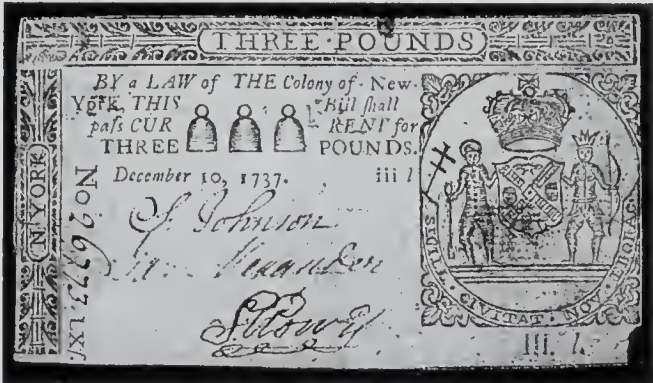 THREE·POUNDS
BY a LAW of THE Colony of New-
York, THIS Bill ſhall
paſs CUR RENT for
THREE POUNDS.
December 10, 1737. iii l
N. YORK
No
Johnson
SIGILL · CIVITAT · NOV · EBORAC
III. l.